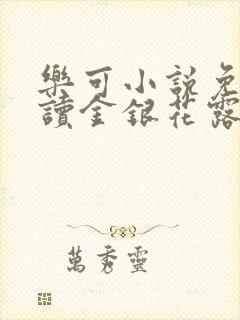 樂可小說免
讀金銀花露
萬秀靈